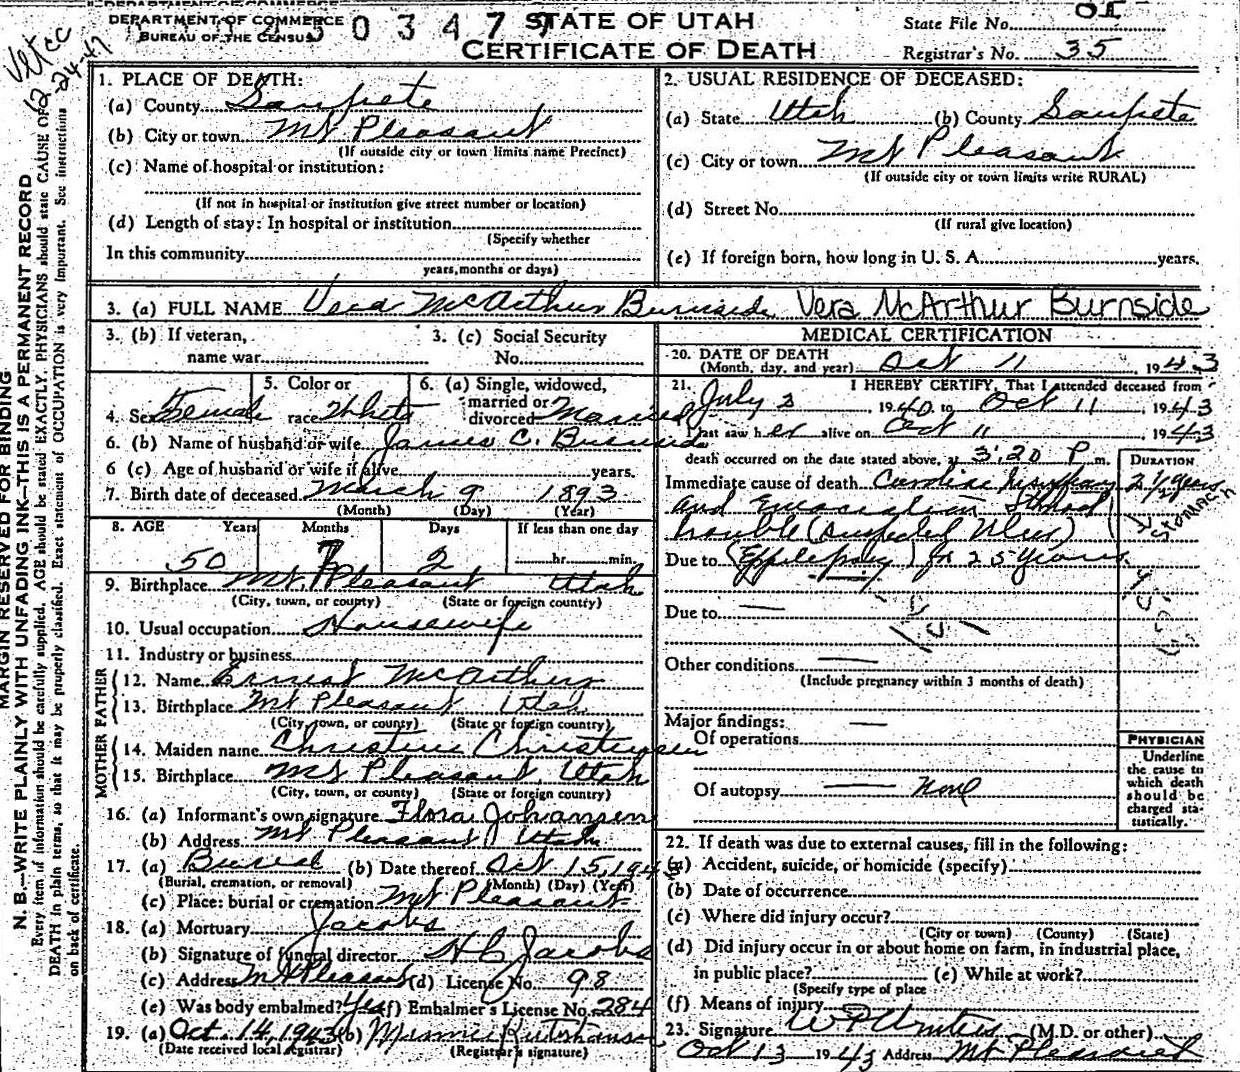 DEPARTMENT OF COMMERCE
BUREAU OF THE CENSUS
0 3 4 7
STATE OF UTAH
CERTIFICATE OF DEATH
State File No. 01
Registrar's No. 35
MARGIN RESERVED FOR BINDING
N. B.—WRITE PLAINLY WITH UNFADING INK—THIS IS A PERMANENT RECORD
Every item of information should be carefully supplied. AGE should be stated EXACTLY. PHYSICIANS should state CAUSE OF
DEATH in plain terms, so that it may be properly classified. Exact statement of OCCUPATION is very important. See instructions
on back of certificate.
1. PLACE OF DEATH:
(a) County Sanpete
(b) City or town Mt Pleasant
(If outside city or town limits name Precinct)
(c) Name of hospital or institution:
(If not in hospital or institution give street number or location)
(d) Length of stay: In hospital or institution
(Specify whether
In this community
years, months or days)
2. USUAL RESIDENCE OF DECEASED:
(a) State Utah (b) County Sanpete
(c) City or town Mt Pleasant
(If outside city or town limits write RURAL)
(d) Street No.
(If rural give location)
(e) If foreign born, how long in U. S. A. years.
3. (a) FULL NAME Vera McArthur Burnside Vera McArthur Burnside
3. (b) If veteran,
name war
3. (c) Social Security
No.
4. Sex Female
5. Color or
race White
6. (a) Single, widowed,
married or
divorced Married
6. (b) Name of husband or wife James C. Burnside
6 (c) Age of husband or wife if alive years.
7. Birth date of deceased March 9 1893
(Month) (Day) (Year)
8. AGE Years Months Days If less than one day
50 7 2 hr. min.
9. Birthplace Mt. Pleasant Utah
(City, town, or county) (State or foreign country)
10. Usual occupation Housewife
11. Industry or business
FATHER
12. Name Ernest McArthur
13. Birthplace Mt Pleasant Utah
(City, town, or county) (State or foreign country)
MOTHER
14. Maiden name Christine Christensen
15. Birthplace Mt Pleasant, Utah
(City, town, or county) (State or foreign country)
16. (a) Informant's own signature Flora Johansen
(b) Address Mt Pleasant Utah
17. (a) Burial (b) Date thereof Oct 15, 1943
(Burial, cremation, or removal) (Month) (Day) (Year)
(c) Place: burial or cremation Mt Pleasant
18. (a) Mortuary Jacobs
(b) Signature of funeral director H C Jacobs
(c) Address Mt Pleasant (d) License No. 98
(e) Was body embalmed? Yes (f) Embalmer's License No. 284
19. (a) Oct. 14, 1943 (b) Minnie
(Date received local registrar) (Registrar's signature)
MEDICAL CERTIFICATION
20. DATE OF DEATH
(Month, day, and year) Oct 11 1943
21. I HEREBY CERTIFY, That I attended deceased from
July 3 1940 to Oct 11, 1943
I last saw her alive on Oct 11 1943
death occurred on the date stated above, at 3:20 P. m.
DURATION
Immediate cause of death Cardiac 2 1/2 years
and Emaciation Stomach
trouble (suspected Ulcer)
Stomach
Due to (Eppilepsy) for 25 years
Due to —
Other conditions —
(Include pregnancy within 3 months of death)
Major findings: —
Of operations
Of autopsy — None
PHYSICIAN
Underline
the cause to
which death
should be
charged sta-
tistically.
22. If death was due to external causes, fill in the following:
(a) Accident, suicide, or homicide (specify)
(b) Date of occurrence
(c) Where did injury occur?
(City or town) (County) (State)
(d) Did injury occur in or about home on farm, in industrial place,
in public place? (e) While at work?
(Specify type of place
(f) Means of injury
23. Signature (M.D. or other)
Oct 13 1943 Address Mt Pleasant